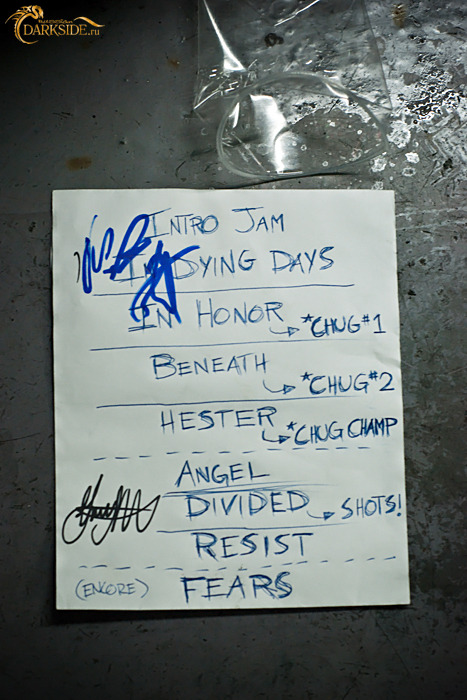 RUSSIAN
DARKSIDE.ru
INTRO JAM
DYING DAYS
IN HONOR
*CHUG#1
BENEATH
*CHUG#2
HESTER
*CHUG CHAMP
ANGEL
DIVIDED
SHOTS!
RESIST
(ENCORE) FEARS